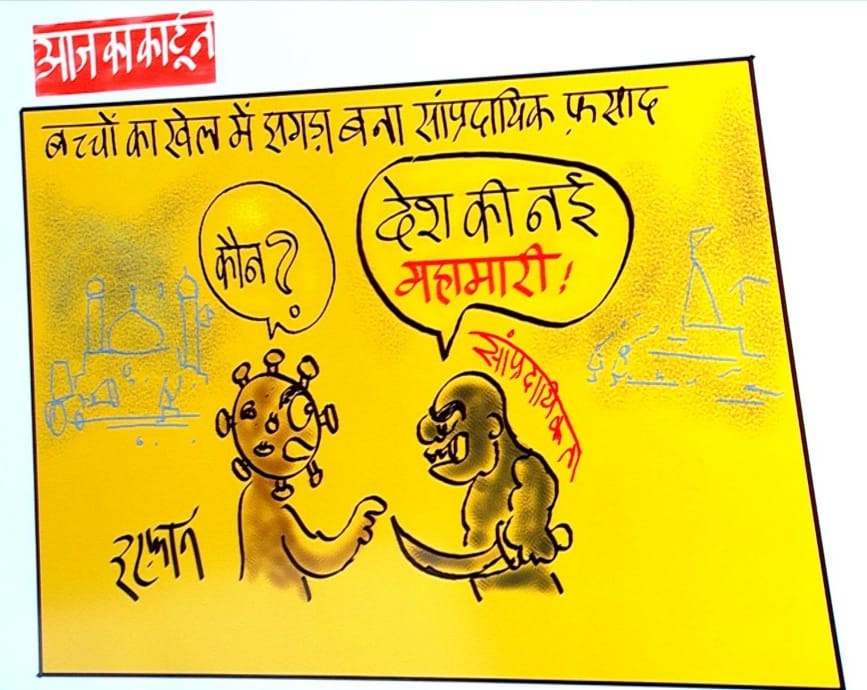 आज का कार्टून
बच्चों का खेल में झगड़ा बना सांप्रदायिक फ़साद
कौन?
देश की नई
महामारी!
सांप्रदायिकता
इरफ़ान